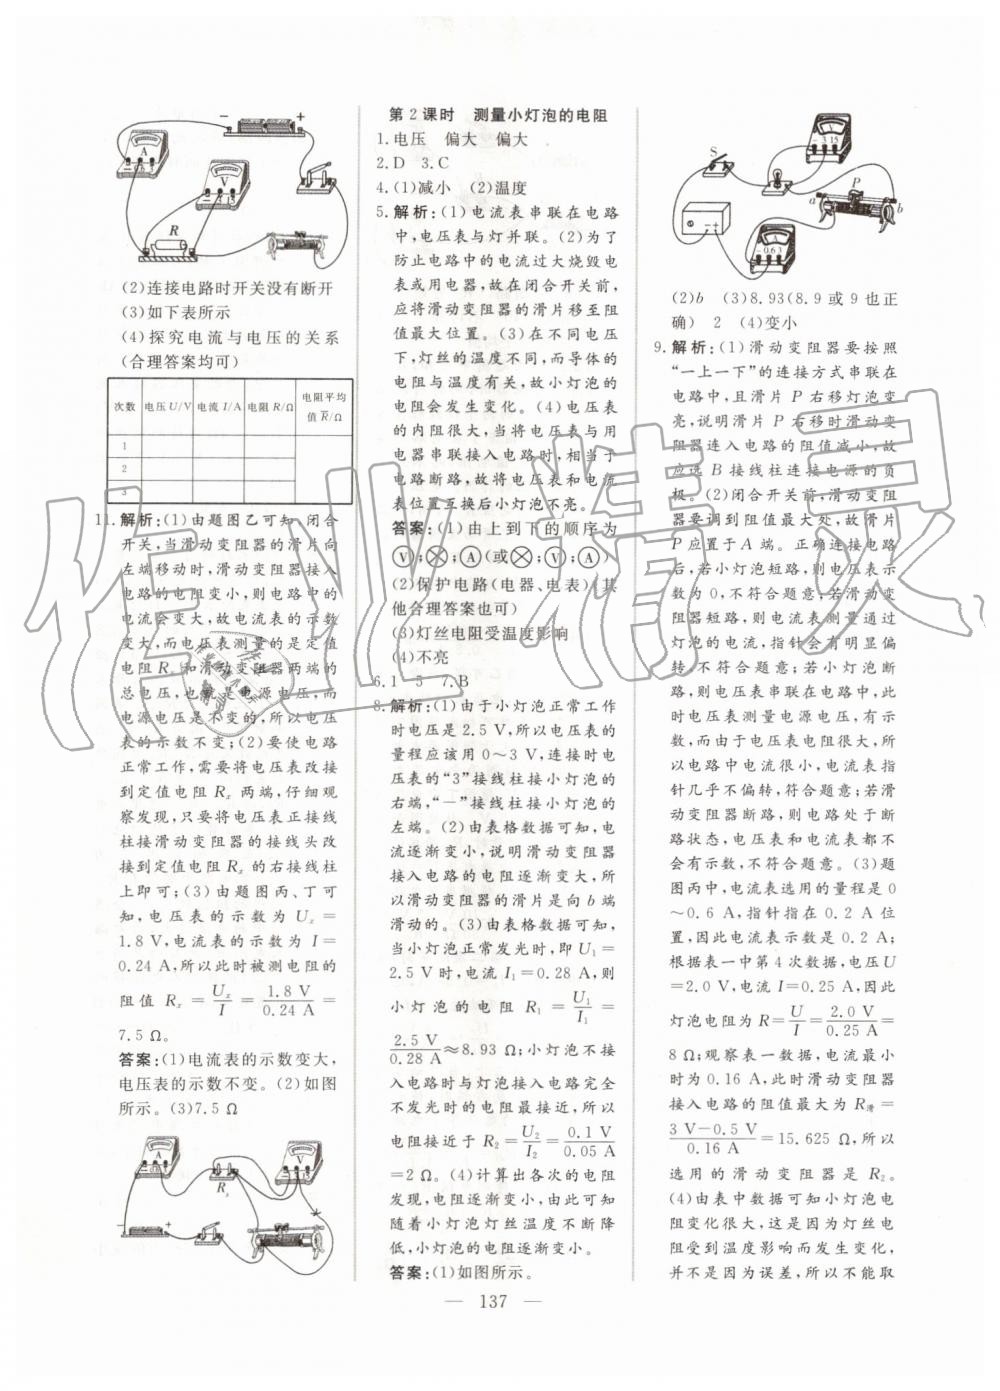 (2)连接电路时开关没有断开
(3)如下表所示
(4)探究电流与电压的关系
(合理答案均可)
次数 电压U/V 电流I/A 电阻R/Ω 电阻平均值R̅/Ω
1
2
3
11. 解析:(1)由题图乙可知,闭合
开关,当滑动变阻器的滑片向
左端移动时,滑动变阻器接入
电路的电阻变小,则电路中的
电流会变大,故电流表的示数
变大,而电压表测量的是定值
电阻Rₓ和滑动变阻器两端的
总电压,也就是电源电压,而
电源电压是不变的,所以电压表
的示数不变;(2)要使电路
正常工作,需要将电压表改接
到定值电阻Rₓ两端,仔细观
察发现,只要将电压表正接线
柱接滑动变阻器的接线头改
接到定值电阻Rₓ的右接线柱
上即可;(3)由题图丙、丁可
知,电压表的示数为Uₓ=
1.8 V,电流表的示数为I=
0.24 A,所以此时被测电阻的
阻值Rₓ=Uₓ/I=1.8 V/0.24 A=
7.5 Ω。
答案:(1)电流表的示数变大,
电压表的示数不变。(2)如图
所示。(3)7.5 Ω
第2课时 测量小灯泡的电阻
1.电压 偏大 偏大
2.D 3.C
4.(1)减小 (2)温度
5.解析:(1)电流表串联在电路
中,电压表与灯并联。(2)为了
防止电路中的电流过大烧毁电
表或用电器,故在闭合开关前,
应将滑动变阻器的滑片移至阻
值最大位置。(3)在不同电压
下,灯丝的温度不同,而导体的
电阻与温度有关,故小灯泡的
电阻会发生变化。(4)电压表
的内阻很大,当电压表与用
电器串联接入电路时,相当于
电路断路,故将电压表和电流
表位置互换后小灯泡不亮。
答案:(1)由上到下的顺序为
Ⓥ;⊗;Ⓐ(或⊗;Ⓥ;Ⓐ)
(2)保护电路(电器、电表)(其
他合理答案也可)
(3)灯丝电阻受温度影响
(4)不亮
6.1 5 7.B
8.解析:(1)由于小灯泡正常工作
时电压是2.5 V,所以电压表的
量程应该用0~3 V,连接时电
压表的“3”接线柱接小灯泡的
右端,“-”接线柱接小灯泡的
左端。(2)由表格数据可知,电
流逐渐变小,说明滑动变阻器
接入电路的电阻逐渐变大,所
以滑动变阻器的滑片是向b端
滑动的。(3)由表格数据可知,
当小灯泡正常发光时,即U₁=
2.5 V时,电流I₁=0.28 A,则
小灯泡的电阻R₁=U₁/I₁=
2.5 V/0.28 A≈8.93 Ω;小灯泡不接
入电路时与灯泡接入电路完全
不发光时的电阻最接近,所以
电阻接近于R₂=U₂/I₂=0.1 V/0.05 A
=2 Ω。(4)计算出各次的电阻
发现,电阻逐渐变小,由此可知
随着小灯泡灯丝温度不断降
低,小灯泡的电阻逐渐变小。
答案:(1)如图所示。
(2)b (3)8.93(8.9或9也正
确) 2 (4)变小
9.解析:(1)滑动变阻器要按照
“一上一下”的连接方式串联在
电路中,且滑片P右移灯泡变
亮,说明滑片P右移时滑动变
阻器连入电路的阻值减小,故
应选B接线柱连接电源的负
极。(2)闭合开关前,滑动变阻
器要调到阻值最大处,故滑片
P应置于A端。正确连接电路
后,若小灯泡短路,则电压表示
数为0,不符合题意;若滑动变
阻器短路,则电流表测量通过
灯泡的电流,指针会有明显偏
转,不符合题意;若小灯泡断
路,则电压表串联在电路中,此
时电压表测量电源电压,有示
数,而由于电压表电阻很大,所
以电路中电流很小,电流表指
针几乎不偏转,符合题意;若滑
动变阻器断路,则电路处于断
路状态,电压表和电流表都不
会有示数,不符合题意。(3)题
图丙中,电流表选用的量程是0
~0.6 A,指针指在0.2 A位
置,因此电流表示数是0.2 A;
根据表一中第4次数据,电压U
=2.0 V,电流I=0.25 A,因此
灯泡电阻为R=U/I=2.0 V/0.25 A=
8 Ω;观察表一发现,电流最小
时为0.16 A,此时滑动变阻器
接入电路的阻值最大为R滑=
3 V-0.5 V/0.16 A=15.625 Ω,所以
选用的滑动变阻器是R₂。
(4)由表中数据可知小灯泡电
阻变化很大,这是因为灯丝电
阻受到温度影响而发生变化,
并不是因为误差,所以不能取
— 137 —
作业精灵